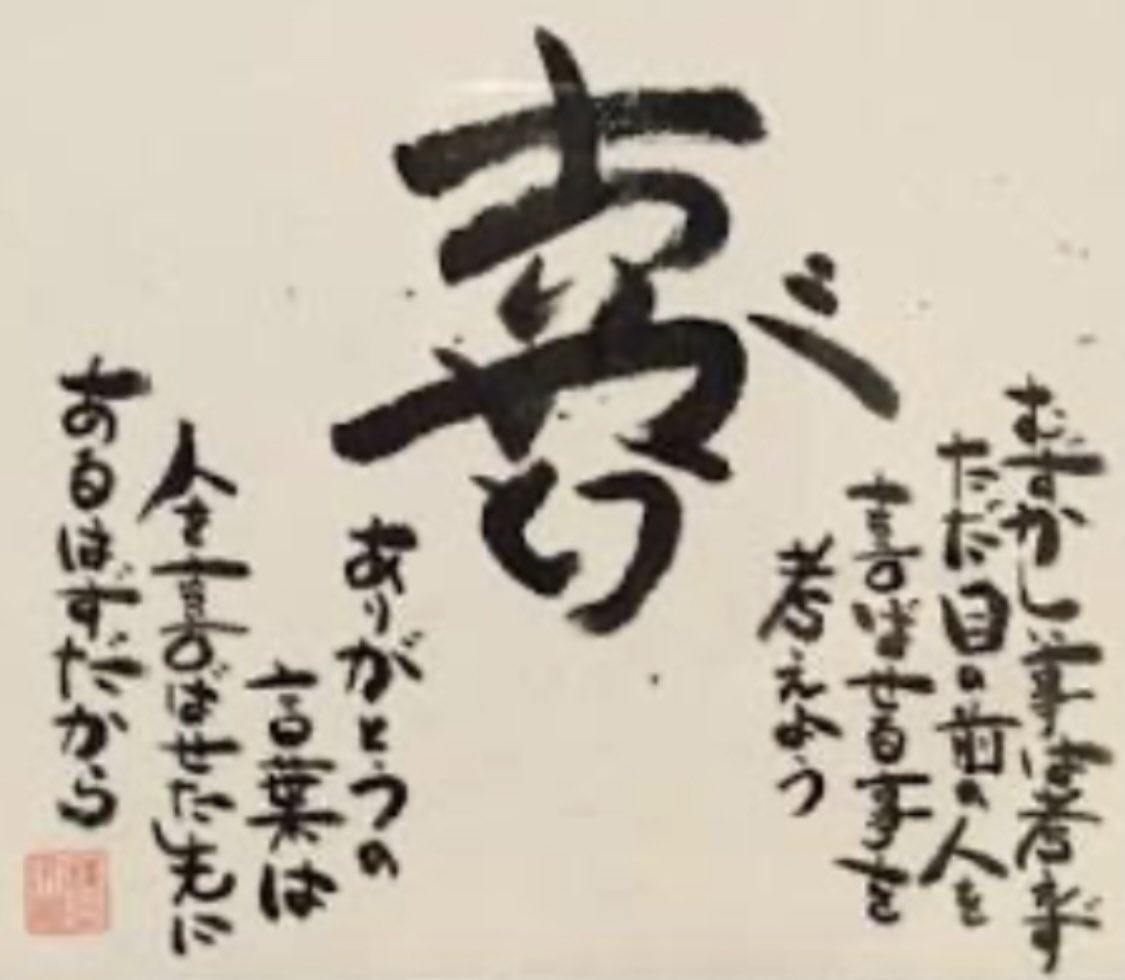 喜
むずかしい事は考えず
ただ目の前の人を
喜ばせる事を
考えよう
ありがとうの
言葉は
人を喜ばせた先に
あるはずだから